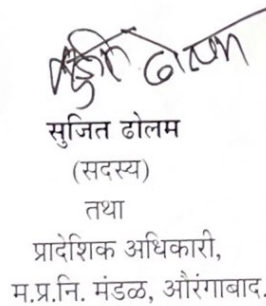 सुजित ढोलम
सुजित ढोलम
(सदस्य)
तथा
प्रादेशिक अधिकारी,
म.प्र.नि. मंडळ, औरंगाबाद.